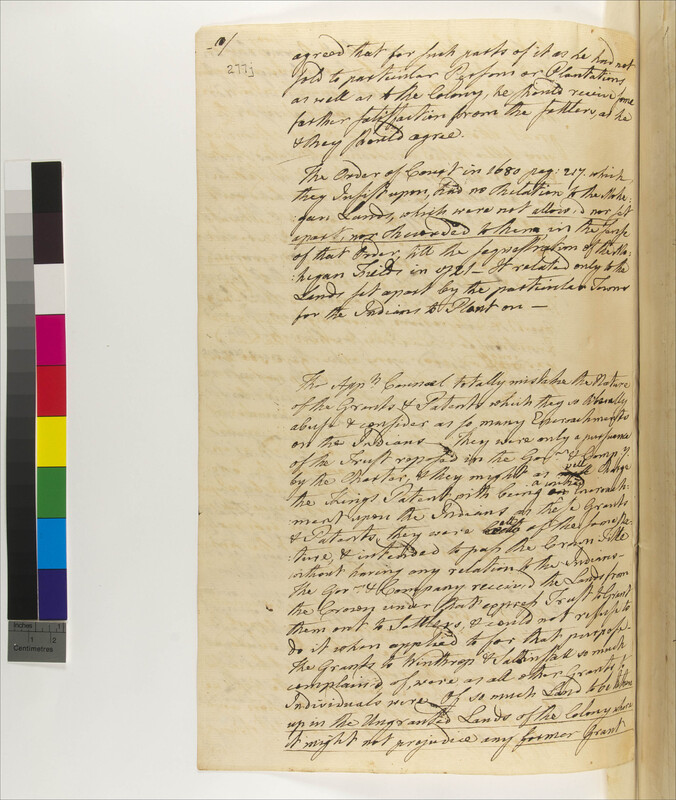 277j
agreed that for such parts of it as he had not
sold to particular Persons or Plantations
as well as to the Colony, he should receive some
farther satisfaction from the settlers, as he
& they should agree.
The Order of Court in 1680 pag: 217. which
they Insist upon, had no Relation to the Mohe:
:gan Lands, which were not allow'd nor set
apart, nor Recorded to them in the sense
of that Order, till the sequestration of the Mo:
:hegan Fields in 1721 — It related only to the
Lands set apart by the particular Towns
for the Indians to Plant on —
The Appts Counsel totally mistake the Nature
of the Grants & Patents which they so liberally
abuse & consider as so many Encroachments
on the Indians — They were only a pursuance
of the Trust reposed in the Govr. & Compy.
by the Charter, & they might as well Charge
the Kings Patent with being an Encroach:
ment upon the Indians as these Grants
& Patents, they were all of the same Na:
:ture, & intended to pass the Crown Title
without having any relation to the Indians —
The Govr. & Company received the Lands from
the Crown under that express Trust to Grant
them out to Settlers, & could not refuse to
do it when applied to for that purpose —
The Grants to Winthrop & Saltinstall so much
complain'd of, were as all other Grants to
Individuals were of so much Land to be taken
up in the Ungranted Lands of the Colony where
it might not prejudice any former Grant
Inches
1
2
Centimetres